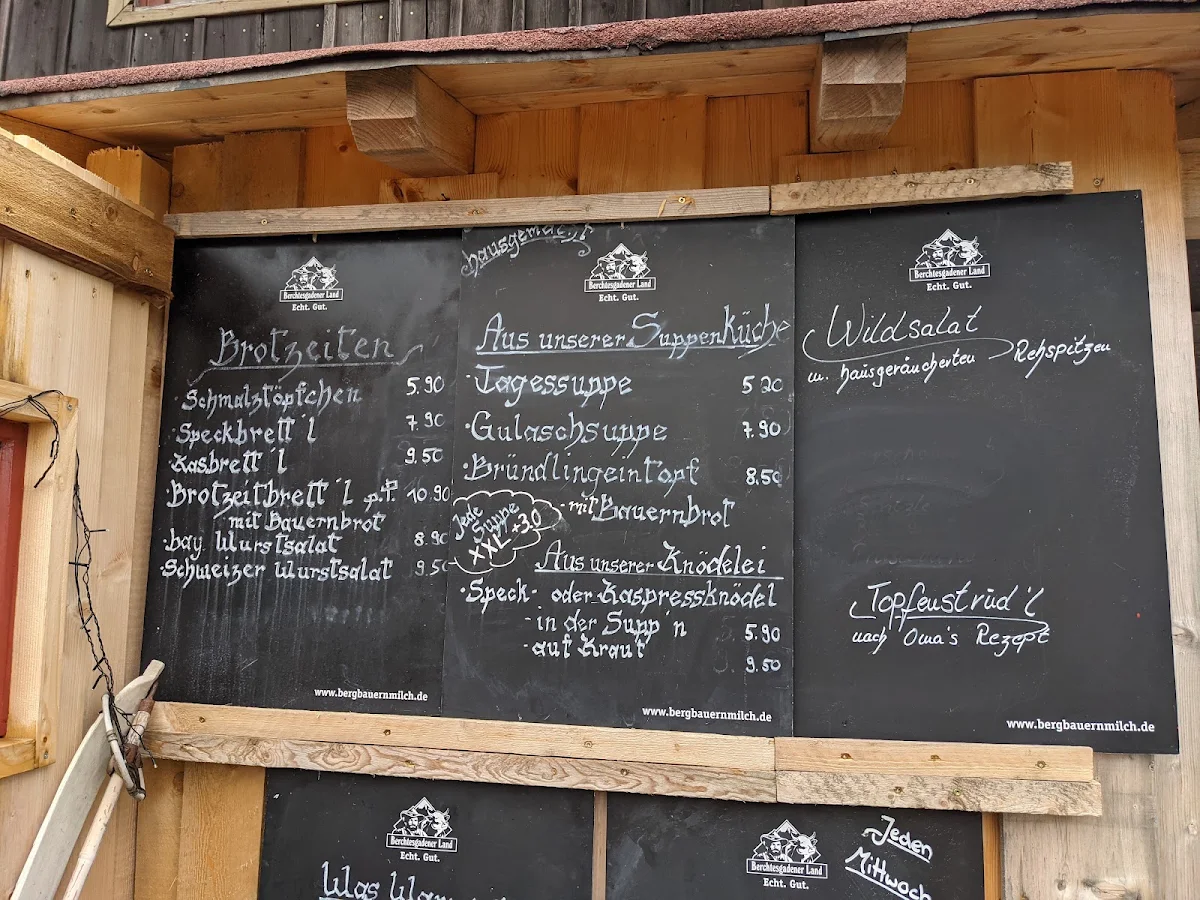 Berchtesgadener Land
Echt. Gut.
Brotzeiten
·Schmalztöpfchen 5.90
·Speckbrett'l 7.90
·Kasbrett'l 9.50
·Brotzeitbrett'l p.P. 10.90
mit Bauernbrot
·bay. Wurstsalat 8.90
·Schweizer Wurstsalat 9.50
www.bergbauernmilch.de
Berchtesgadener Land
Echt. Gut.
Aus unserer Suppenküche
·Tagessuppe 5 20
·Gulaschsuppe 7.90
·Bründlingeintopf 8.50
-mit Bauernbrot
Jede
Suppe
XXL +3.0
Aus unserer Knödelei
·Speck- oder Kaspressknödel
-in der Supp'n 5.90
-auf Kraut 9.50
www.bergbauernmilch.de
Berchtesgadener Land
Echt. Gut.
Wildsalat
m. hausgeräucherten Rehspitzen
Topfenstrud'l
nach Oma's Rezept
www.bergbauernmilch.de
Berchtesgadener Land
Echt. Gut.
Was
Berchtesgadener Land
Echt. Gut.
Jeden
Mittwoch